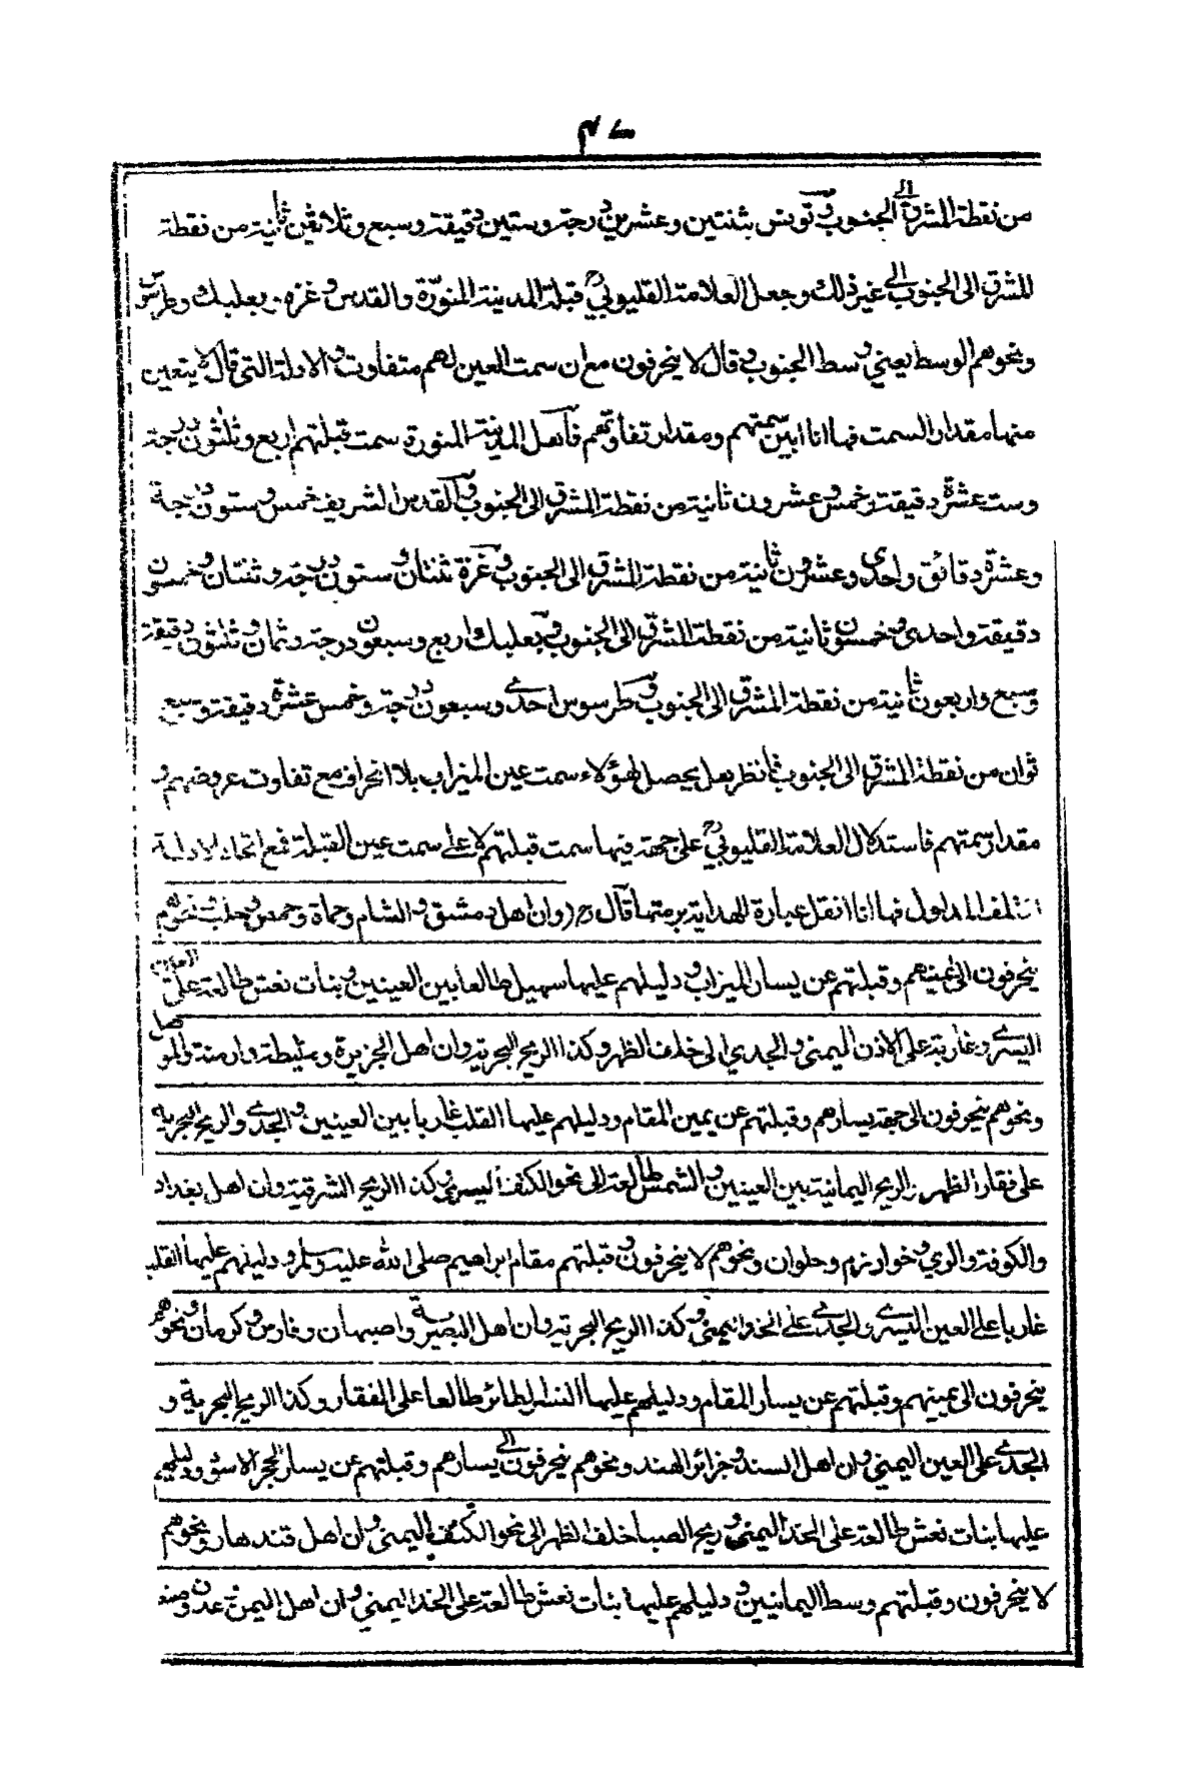 من نقطة المشرق الى الجنوب وتونس بثنتين وعشرين درجة وستين دقيقة وسبع وثلاثين ثانية من نقطة
المشرق الى الجنوب الى غير ذلك وجعل العلامة القليوبي رح قبلة المدينة المنورة والقدس وغزه وبعلبك وطرسوس
ونحوهم الوسط يعني وسط الجنوب وقال لا ينحرفون مع ان سمت العين لهم متفاوت والادلة التي قال لا يتعين
منها مقدار السمت فها انا ابين سمتهم ومقدار تفاوتهم فاهل المدينة المنورة سمت قبلتهم اربع وثلثون درجة
وست عشرة دقيقة وخمس وعشرون ثانية من نقطة المشرق الى الجنوب والقدس الشريف خمس وستون درجة
وعشرة دقائق واحدى وعشرون ثانية من نقطة المشرق الى الجنوب وغزة ثنتان وستون درجة وثنتان وخمسون
دقيقة واحدى وخمسون ثانية من نقطة المشرق الى الجنوب وبعلبك اربع وسبعون درجة وثمان وثلثون دقيقة
وسبع واربعون ثانية من نقطة المشرق الى الجنوب وطرسوس احدى وسبعون درجة وخمس عشرة دقيقة وسبع
ثوان من نقطة المشرق الى الجنوب فانظر هل يحصل لهؤلاء سمت عين الميزاب بلا انحراف مع تفاوت عروضهم و
مقدار سمتهم فاستدلال العلامة القليوبي رح على جهة فيها سمت قبلتهم لا على سمت عين القبلة فمع اتحاد الادلة
اختلف المدلول فها انا انقل عبارة الهداية برمتها قال رح (وان اهل دمشق والشام وحماة وحمص وحلب ونحوهم
ينحرفون الى يمينهم وقبلتهم عن يسار الميزاب ودليلهم عليها سهيل طالعا بين العينين وبنات نعش طالعة على
اليسرى وغاربة على الاذن اليمنى والجدي الى خلف الظهر وكذا الريح البحرية وان اهل الجزيرة وملطية وارمنة والموصل
ونحوهم ينحرفون الى جهة يسارهم وقبلتهم عن يمين المقام ودليلهم عليها القلب غاربا بين العينين والجدى والريح البحرية
على فقار الظهر والريح اليمانية بين العينين والشمس طالعة الى نحو الكتف اليسرى وكذا الريح الشرقية وان اهل بغداد
والكوفة والري وخوارزم وحلوان ونحوهم لا ينحرفون وقبلتهم مقام ابراهيم صلى الله عليه وسلم ودليلهم عليها القلب
غاربا على العين اليسرى والجدى على الخد اليمنى وكذا الريح البحرية وان اهل البصرة واصبهان وفارس وكرمان ونحوهم
ينحرفون الى يمينهم وقبلتهم عن يسار المقام ودليلهم عليها النسر الطائر طالعا على الفقار وكذا الريح البحرية و
الجدى على العين اليمنى وان اهل السند وجزائر الهند ونحوهم ينحرفون الى يسارهم وقبلتهم عن يسار الحجر الاسود ودليلهم
عليها بنات نعش طالعة على الخد اليمنى وريح الصبا خلف الظهر الى نحو الكتف اليمنى وان اهل قندهار ونحوهم
لا ينحرفون وقبلتهم وسط اليمانيين ودليلهم عليها بنات نعش طالعة على الخد اليمنى وان اهل اليمن عدن وصنعا